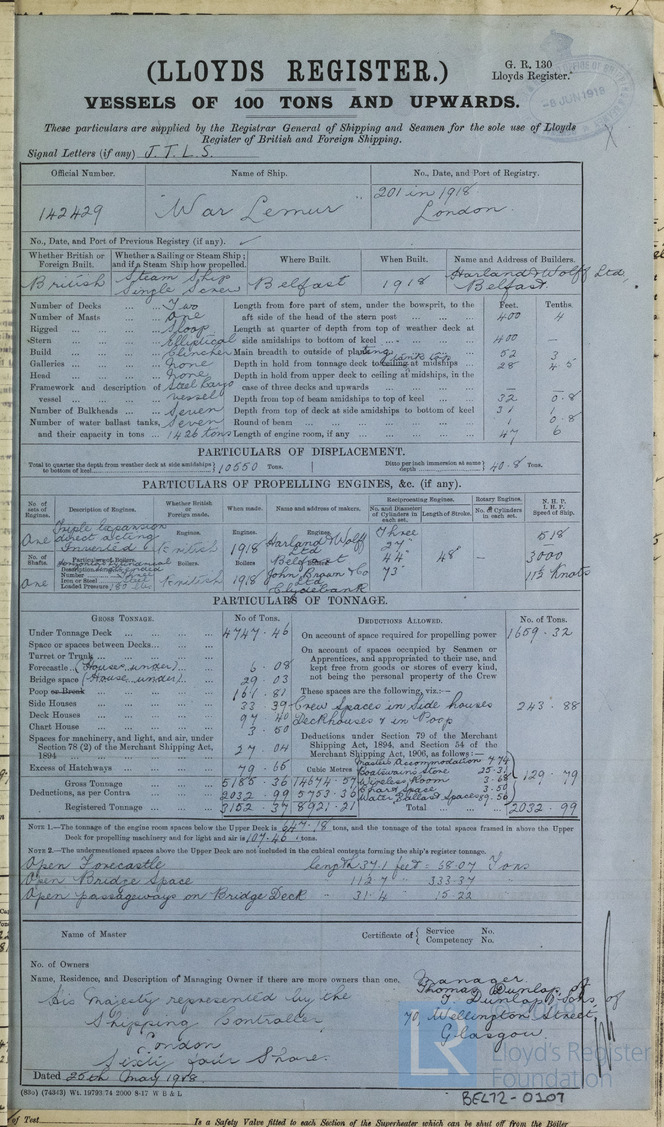 (LLOYDS REGISTER.)
G. R. 130
Lloyds Register.
VESSELS OF 100 TONS AND UPWARDS.
-8 JUN 1918
These particulars are supplied by the Registrar General of Shipping and Seamen for the sole use of Lloyds
Register of British and Foreign Shipping.
Signal Letters (if any) J. T. L. S.
Official Number. Name of Ship. No., Date, and Port of Registry.
142429 "War Lemur" 201 in 1918 London.
No., Date, and Port of Previous Registry (if any).
Whether British or Foreign Built. Whether a Sailing or Steam Ship; and if a Steam Ship how propelled. Where Built. When Built. Name and Address of Builders.
British Steam Ship Single Screw Belfast 1918 Harland & Wolff Ltd, Belfast.
Feet. Tenths.
Number of Decks ... Two Length from fore part of stem, under the bowsprit, to the
Number of Masts ... One aft side of the head of the stern post ... 400 4
Rigged ... Sloop Length at quarter of depth from top of weather deck at
Stern ... Elliptical side amidships to bottom of keel ... 400 —
Build ... Clincher Main breadth to outside of plating 52 3
Galleries ... none Depth in hold from tonnage deck to ceiling tank top at midships ... 28 4.5
Head ... none Depth in hold from upper deck to ceiling at midships, in the
Framework and description of vessel ... Steel Cargo vessel case of three decks and upwards ... —
Depth from top of beam amidships to top of keel ... 32 0.8
Number of Bulkheads ... Seven Depth from top of deck at side amidships to bottom of keel 31 1
Number of water ballast tanks, Seven Round of beam ... 1 0.8
and their capacity in tons ... 1426 tons Length of engine room, if any ... 47 6
PARTICULARS OF DISPLACEMENT.
Total to quarter the depth from weather deck at side amidships to bottom of keel 10550 Tons. Ditto per inch immersion at same depth 40.8 Tons.
PARTICULARS OF PROPELLING ENGINES, &c. (if any).
No. of sets of Engines. Description of Engines. Whether British or Foreign made. When made. Name and address of makers. Reciprocating Engines. Rotary Engines. N. H. P. I. H. P. Speed of Ship.
No. and Diameter of Cylinders in each set. Length of Stroke. No. of Cylinders in each set.
One Triple Expansion direct acting Inverted Engines. British Engines. 1918 Engines. Harland & Wolff Ltd Belfast Three 27" 44" 73" 48" — 518 3000 11½ Knots
No. of Shafts. Particulars of Boilers.
Description
Number ... Three
Iron or Steel ... Steel
Loaded Pressure 180 lbs
One Boilers. British Boilers 1918 Boilers John Brown & Co Ltd Clydebank
PARTICULARS OF TONNAGE.
GROSS TONNAGE. No of Tons. DEDUCTIONS ALLOWED. No. of Tons.
Under Tonnage Deck ... 4747.46 On account of space required for propelling power 1659.32
Space or spaces between Decks ...
Turret or Trunk ... On account of spaces occupied by Seamen or
Forecastle (House under) 6.08 Apprentices, and appropriated to their use, and
Bridge space (House under) 29.03 kept free from goods or stores of every kind,
not being the personal property of the Crew
Poop or Break ... 161.81 These spaces are the following, viz.:—
Side Houses ... 33.39 Crew Spaces in Side houses 243.88
Deck Houses ... 97.40 Deckhouses & in Poop
Chart House ... 3.50
Spaces for machinery, and light, and air, under Section 78 (2) of the Merchant Shipping Act, 1894 ... 27.04 Deductions under Section 79 of the Merchant Shipping Act, 1894, and Section 54 of the Merchant Shipping Act, 1906, as follows:—
Excess of Hatchways ... 79.65 Cubic Metres
Masters Accommodation 7.74
Boatswains Store 25.31
Wireless Room 3.68
Chart Space 3.50
Water Ballast Spaces 89.56
129.79
Gross Tonnage ... 5185.36 14674.57
Deductions, as per Contra ... 2032.99 5753.36
Registered Tonnage ... 3152.37 8921.21 Total ... 2032.99
NOTE 1.—The tonnage of the engine room spaces below the Upper Deck is 647.18 tons, and the tonnage of the total spaces framed in above the Upper
Deck for propelling machinery and for light and air is 107.46 tons.
NOTE 2.—The undermentioned spaces above the Upper Deck are not included in the cubical contents forming the ship's register tonnage.
Open Forecastle length 37.1 feet = 68.07 Tons
Open Bridge Space " 112.7 " 333.37
Open passageways on Bridge Deck " 31.4 15.22
Name of Master Certificate of { Service No. Competency No.
No. of Owners
Name, Residence, and Description of Managing Owner if there are more owners than one.
His Majesty represented by the
Shipping Controller
London
Sixty four Shares.
Manager
Thomas Dunlop, of
T. Dunlop & Sons, of
70 Wellington Street,
Glasgow.
Dated 25th May 1918.
(830) (74343) Wt. 19793/74 2000 8-17 W B & L
LR
Lloyd's Register
Foundation
BEL72-0107
of Test
Is a Safety Valve fitted to each Section of the Superheater which can be shut off from the Boiler